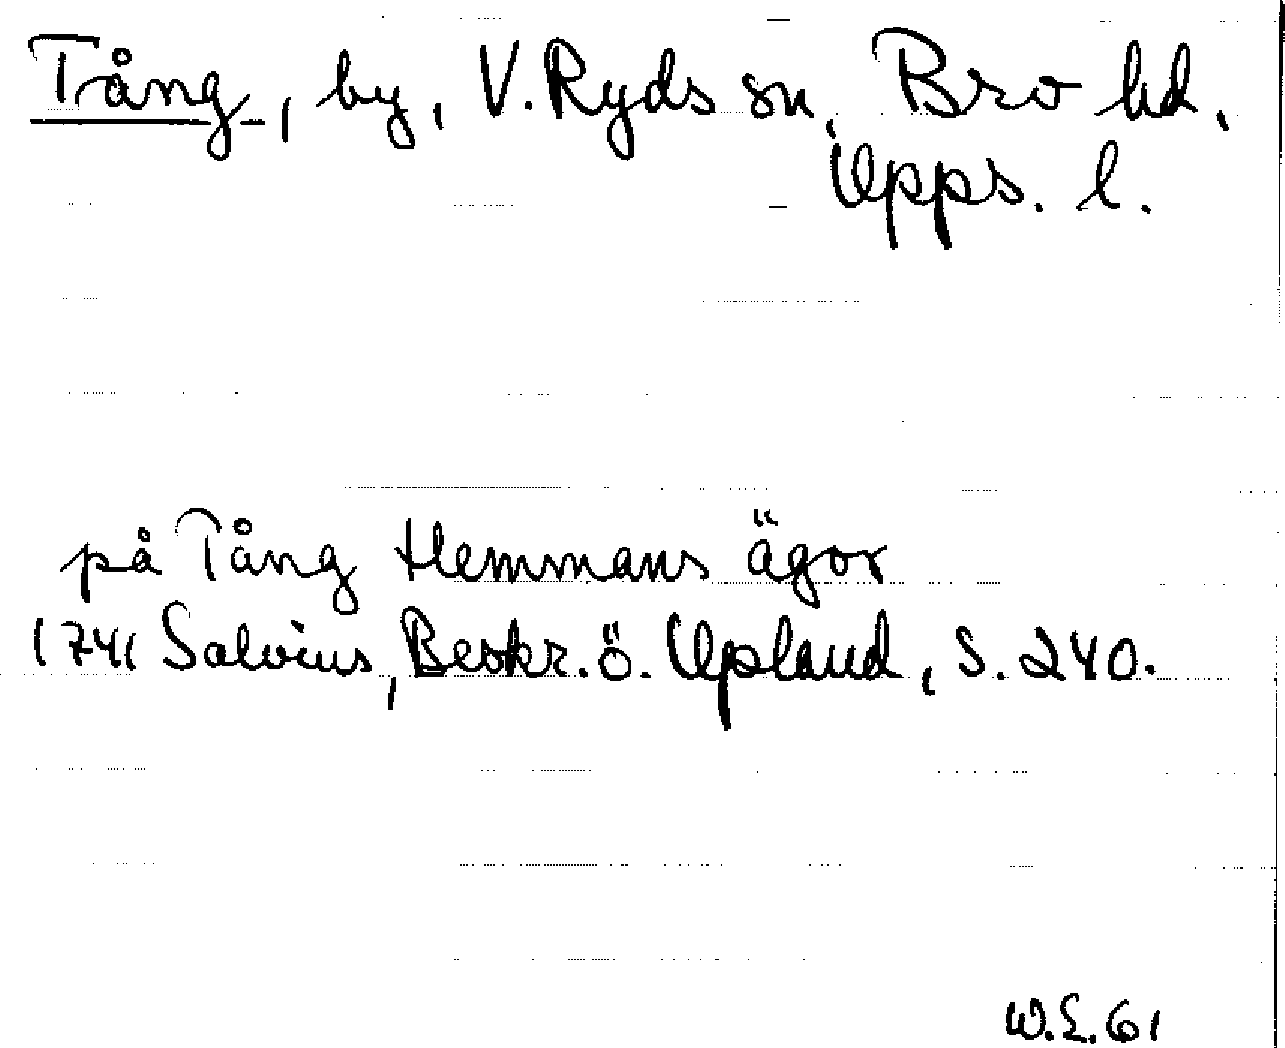 Tång, by, V. Ryds sn, Bro hd,
Upps. l.
på Tång Hemmans ägor
1741 Salvius, Beskr. ö. Upland, s. 240.
W.L. 61